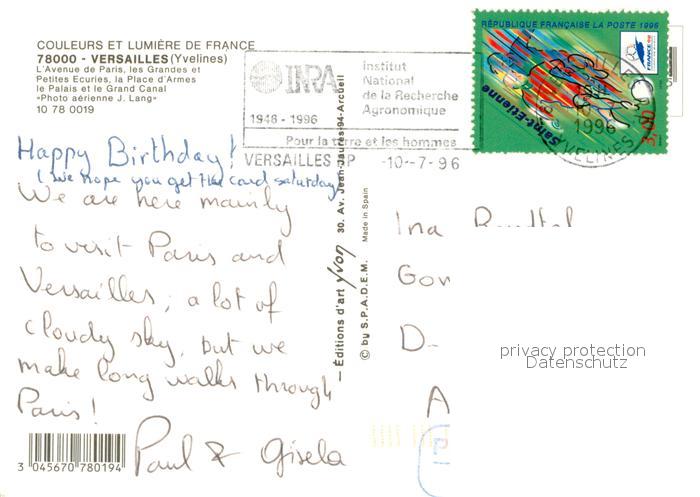 COULEURS ET LUMIÈRE DE FRANCE
78000 - VERSAILLES (Yvelines)
L'Avenue de Paris, les Grandes et
Petites Ecuries, la Place d'Armes
le Palais et le Grand Canal
«Photo aérienne J. Lang»
10 78 0019
Happy Birthday!
(we hope you get the card saturday)
We are here mainly
to visit Paris and
Versailles; a lot of
cloudy sky, but we
make long walks through
Paris!
Paul & Gisela
3 045670 780194
INRA
Institut
National
de la Recherche
Agronomique
1946 - 1996
Pour la terre et les hommes
VERSAILLES RP -10-7-96
RÉPUBLIQUE FRANÇAISE LA POSTE 1996
FRANCE 98
Saint-Etienne
3,00
1996
YVELINES
— Éditions d'art Yvon 30. Av. Jean-Jaurès-94-Arcueil
© by S.P.A.D.E.M. Made in Spain
Ina
Gon
D
A
privacy protection
Datenschutz